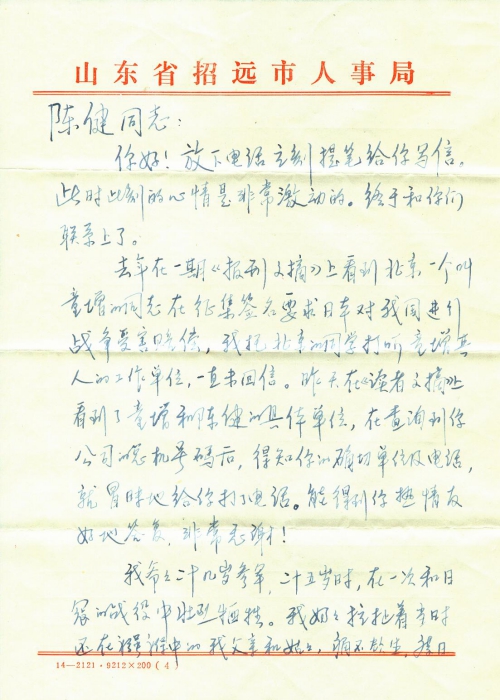 山东省招远市人事局
陈健同志：
你好！放下电话立刻提笔给你写信。
此时此刻的心情是非常激动的。终于和你们
联系上了。
去年在一期《报刊文摘》上看到北京一个叫
童增的同志在征集签名要求日本对我国进行
战争受害赔偿，我托北京的同学打听童增其
人的工作单位，一直未回信。昨天在《读者文摘》上
看到了童增和陈健的具体单位，在查询到你
公司的总机号码后，得知你的确切单位及电话，
就冒昧地给你打了电话。能得到你热情友
好地答复，非常感谢！
我爷爷二十几岁参军，二十五岁时，在一次和日
寇的战役中壮烈牺牲。我奶奶拉扯着当时
还在襁褓中的我父亲和姑姑，痛不欲生，
14—2121·9212×200(4